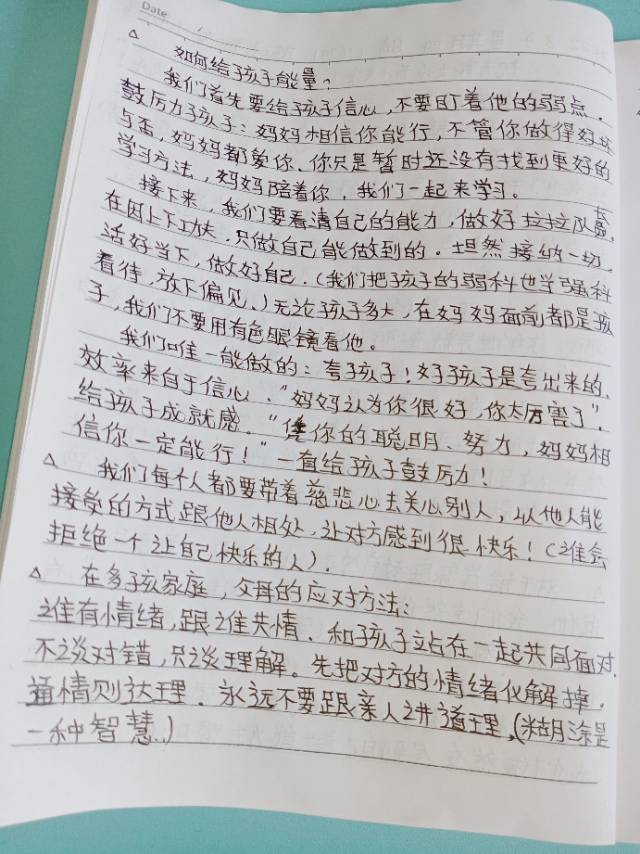 Date
△ 如何给孩子能量?
我们首先要给孩子信心,不要盯着他的弱点.
鼓厉力孩子:妈妈相信你能行,不管你做得好坏
与否,妈妈都爱你.你只是暂时还没有找到更好的
学习方法,妈妈陪着你,我们一起来学习。
接下来,我们要看清自己的能力,做好拉拉队长,
在因上下功夫,只做自己能做到的.坦然接纳一切,
活好当下,做好自己.(我们把孩子的弱科也当强科
看待,放下偏见.)无论孩子多大,在妈妈面前都是孩
子,我们不要用有色眼镜看他。
我们唯一能做的:夸孩子!好孩子是夸出来的.
效率来自于信心."妈妈认为你很好,你太厉害了".
给孩子成就感。"凭你的聪明、努力,妈妈相
信你一定能行!"一直给孩子鼓厉力!
△ 我们每个人都要带着慈悲心去关心别人,以他人能
接受的方式跟他人相处,让对方感到很快乐!(谁会
拒绝一个让自己快乐的人).
△ 在多孩家庭,父母的应对方法:
谁有情绪,跟谁共情.和孩子站在一起共同面对.
不谈对错,只谈理解。先把对方的情绪化解掉.
通情则达理.永远不要跟亲人讲道理,(糊涂是
一种智慧.)